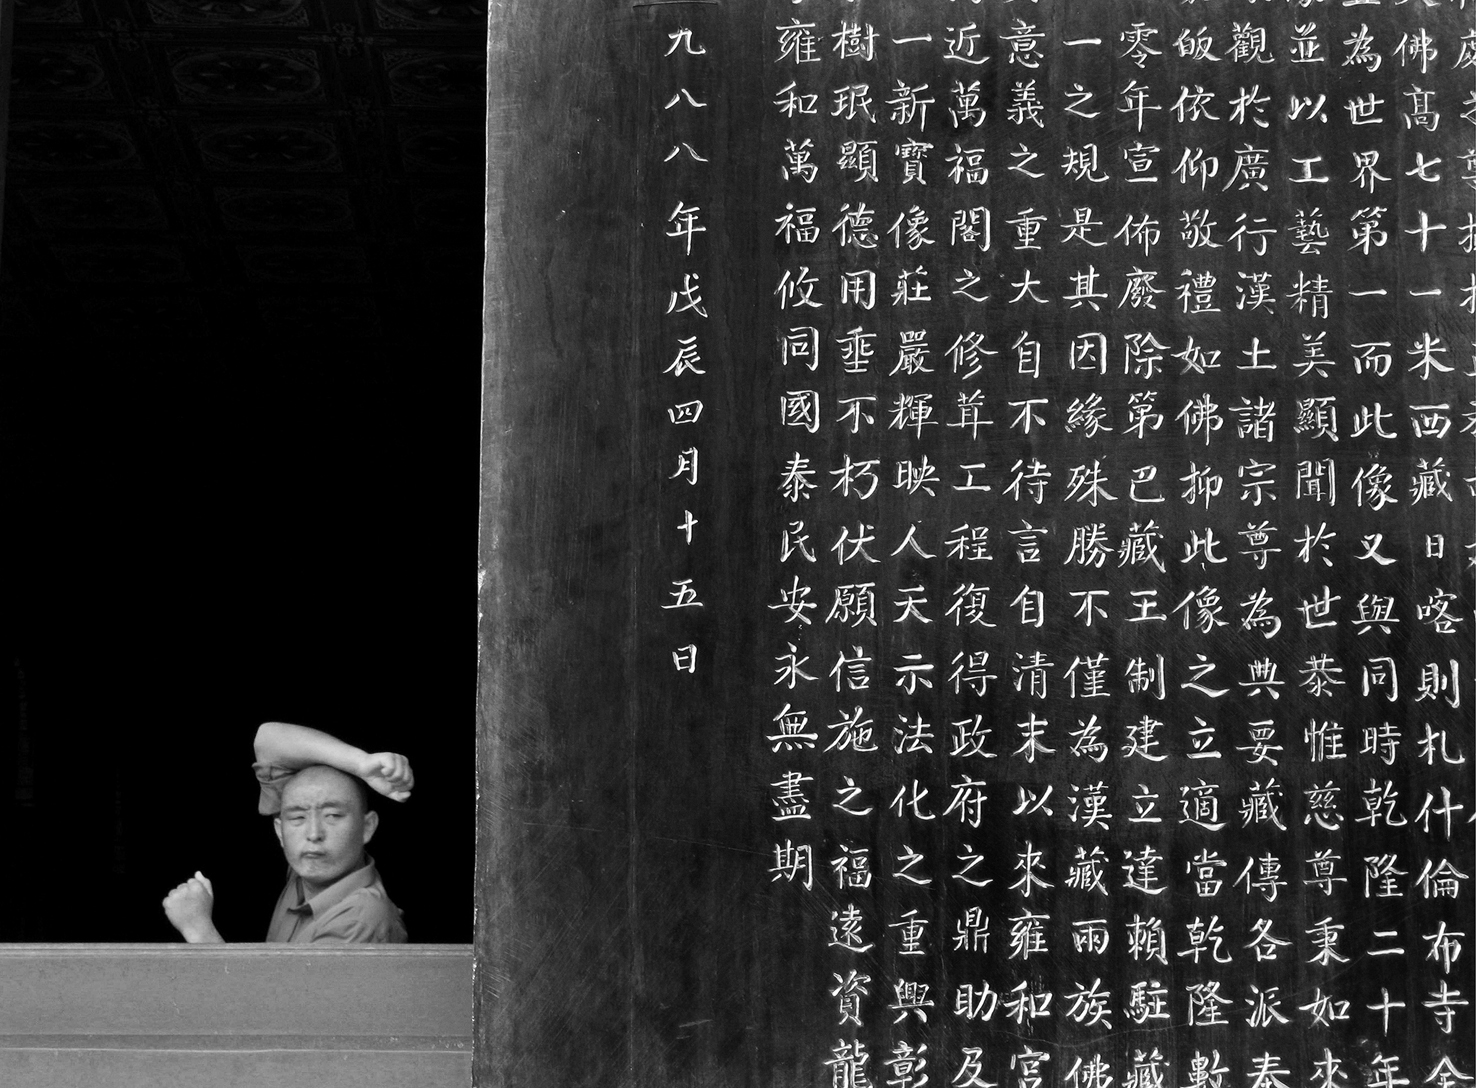 處之尊
佛高七十一米西藏日喀則札什倫布寺金
為世界第一而此像又與同時乾隆二十年
並以工藝精美顯聞於世恭惟慈尊秉如來
觀於廣行漢土諸宗尊為典要藏傳各派奉
皈依仰敬禮如佛抑此像之立適當乾隆數
零年宣佈廢除第巴藏王制建立達賴駐藏
一之規是其因緣殊勝不僅為漢藏兩族佛
意義之重大自不待言自清末以來雍和宮
近萬福閣之修茸工程復得政府之鼎助及
一新寶像莊嚴輝映人天示法化之重興彰
樹珉顯德用垂不朽伏願信施之福遠資龍
雍和萬福攸同國泰民安永無盡期
九八八年戊辰四月十五日